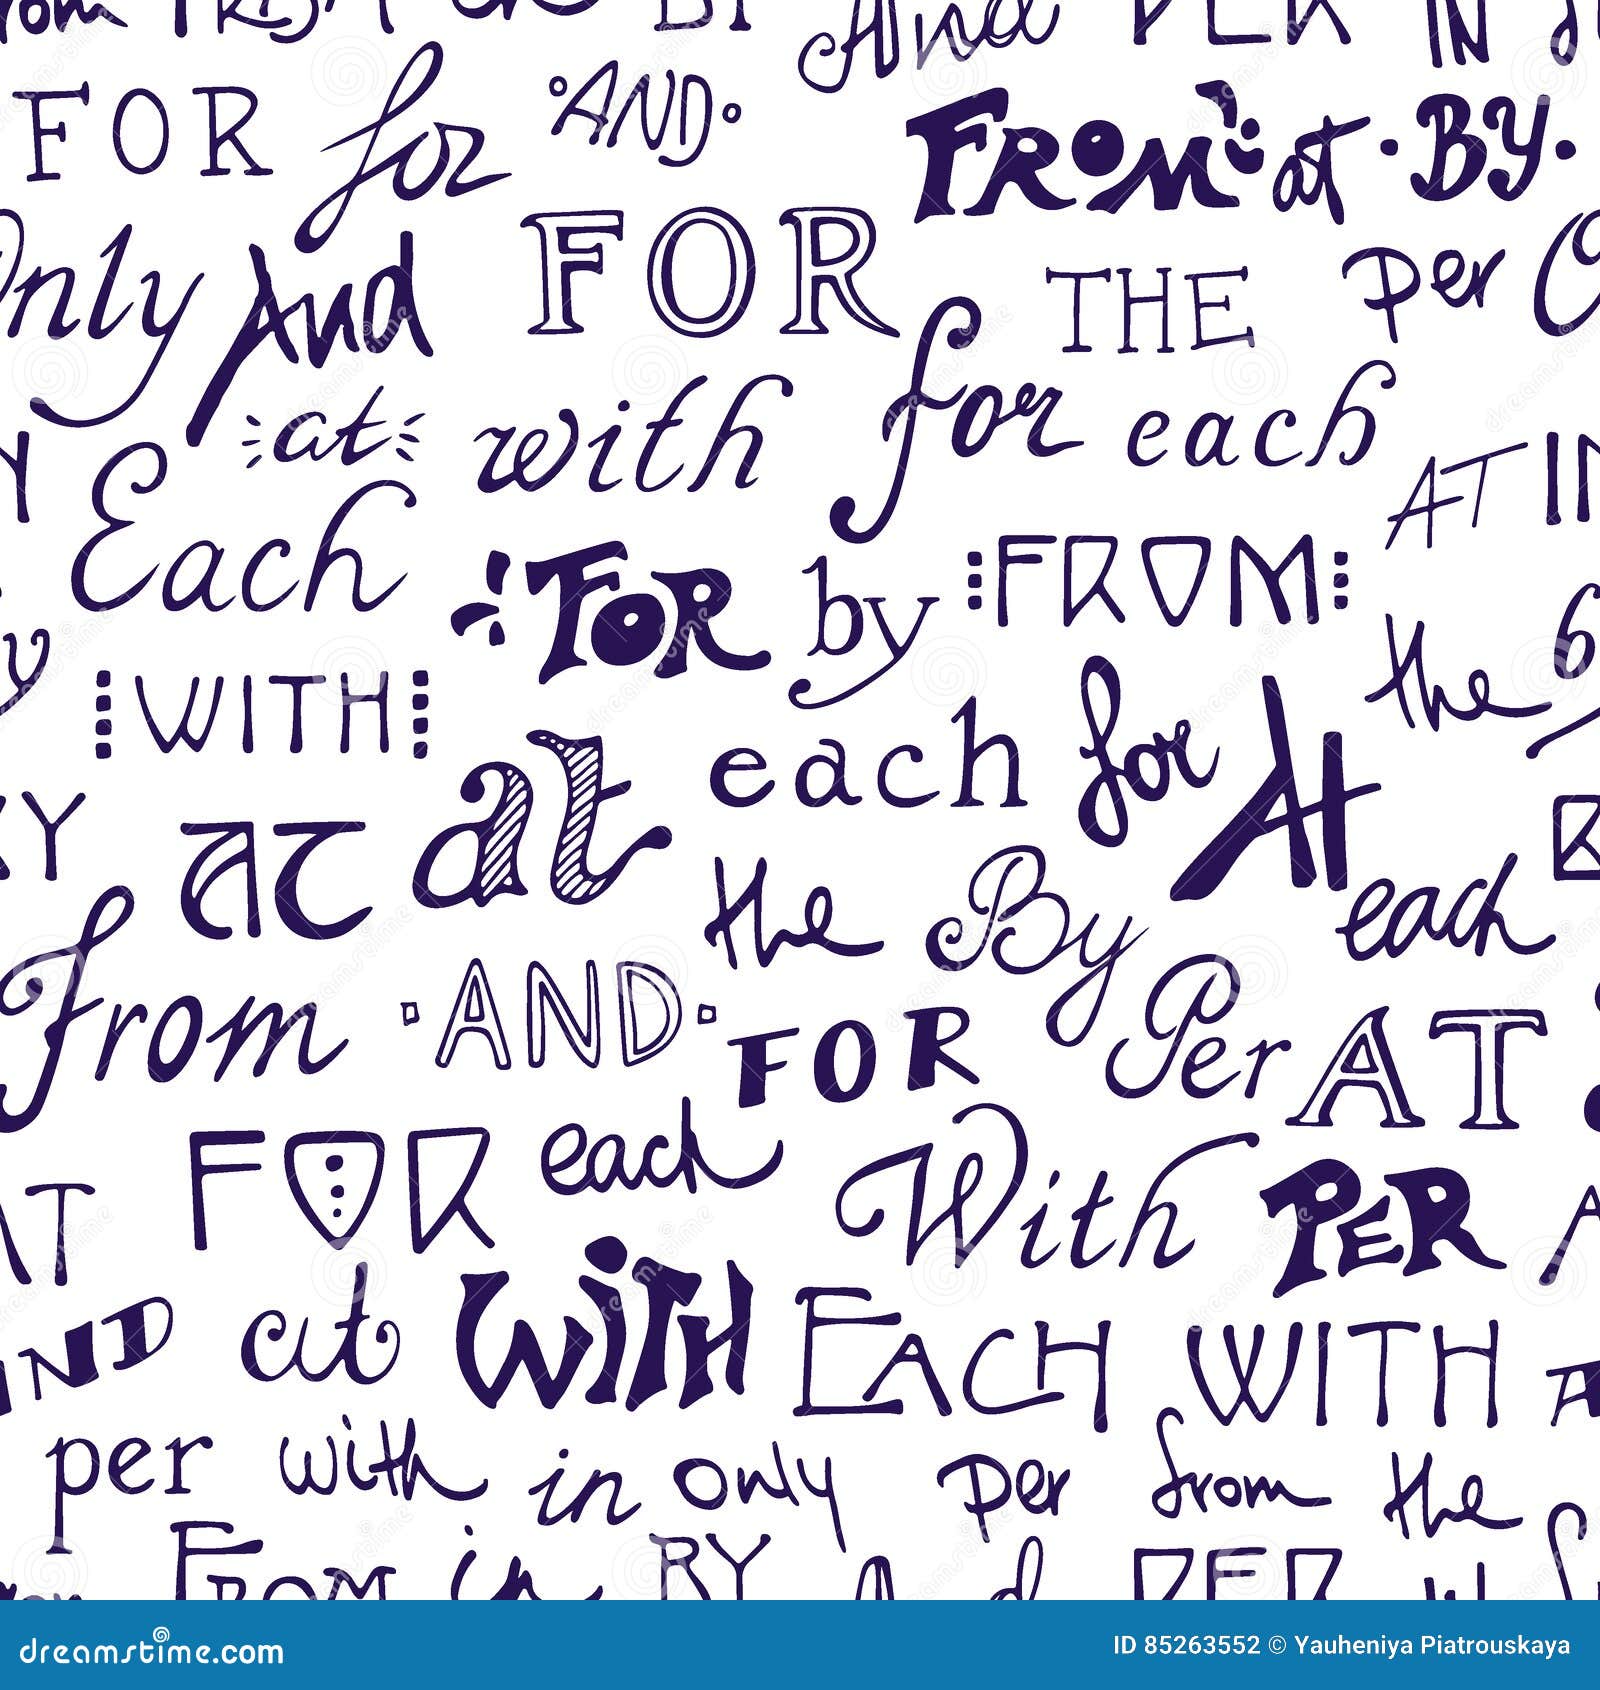 And PER IN
FOR for AND FROM at BY
Only And FOR THE per
at with for each
Each AT IN
FOR by FROM
WITH the
at each for At
at the By each
From AND FOR Per AT
FOR each With PER
AND at WITH EACH WITH
per with in only per from the
FROM in BY And PER
dreamstime.com ID 85263552 © Yauheniya Piatrouskaya